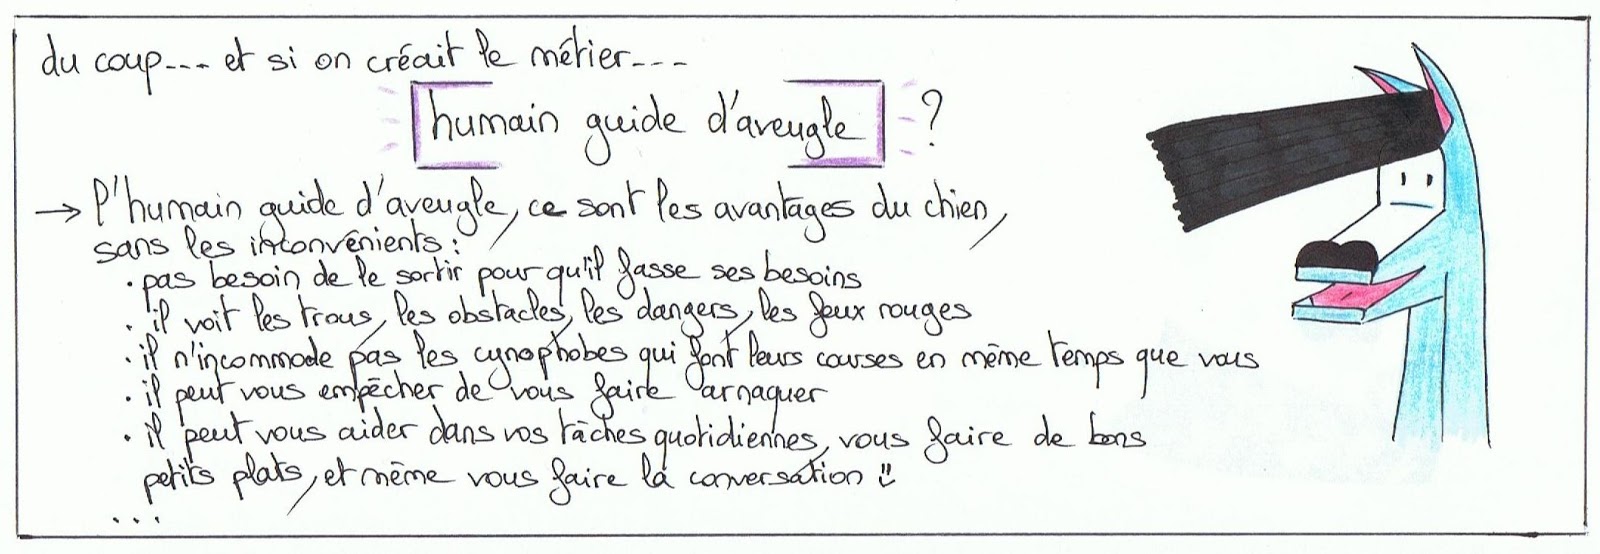 du coup... et si on créait le métier...
humain guide d'aveugle ?
→ l'humain guide d'aveugle, ce sont les avantages du chien,
sans les inconvénients :
. pas besoin de le sortir pour qu'il fasse ses besoins
. il voit les trous, les obstacles, les dangers, les feux rouges
. il n'incommode pas les cynophobes qui font leurs courses en même temps que vous
. il peut vous empêcher de vous faire arnaquer
. il peut vous aider dans vos tâches quotidiennes, vous faire de bons
petits plats, et même vous faire la conversation !!
...